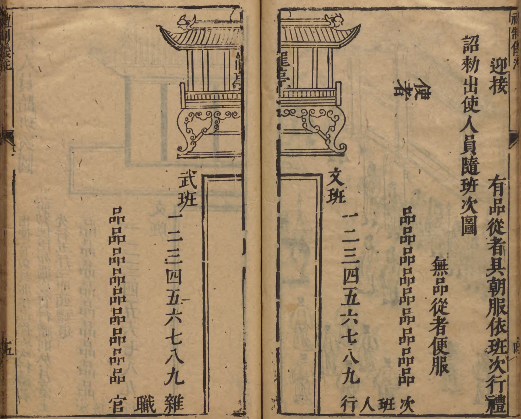 迎接
詔勑出使人員隨班次圖
有品從者具朝服依班次行禮
無品從者便服
使者
龍亭
文班
品品品品品品品品品
一二三四五六七八九
次班人行
武班
一二三四五六七八九
品品品品品品品品品
雜職官
五